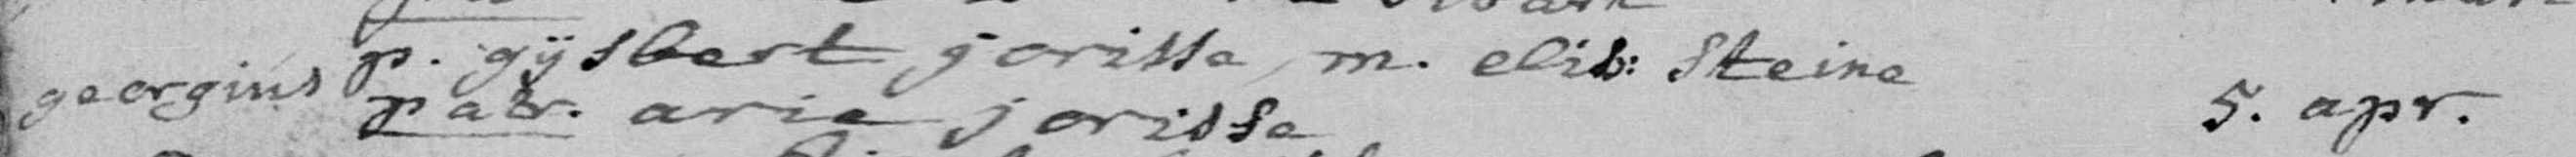 georgius p. gijsbert jorisse, m. elis: Steine
patr. arie jorisse 5. apr.